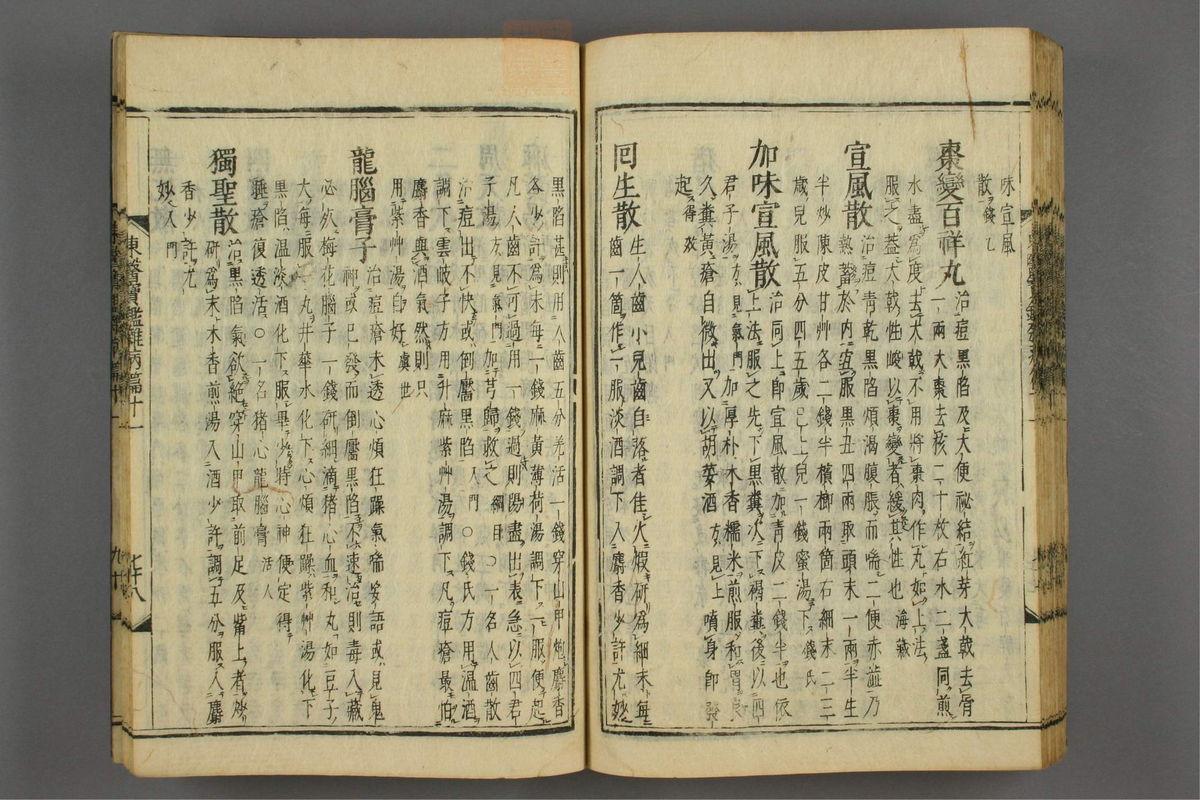 味宣風
散錢乙
棗變百祥丸 治痘黑陷及大便祕結紅芽大戟去骨
一兩大棗去核二十枚右水二盞同煎
水盡爲度去大戟不用將棗肉作丸如上法
服之蓋大戟性峻以棗變者緩其性也海藏
宣風散 治痘靑乾黑陷煩渴腹脹而喘二便赤澁乃
熱蓄於内宜服黑丑四兩取頭末一兩半生
半炒陳皮甘艸各二錢半檳榔兩箇右細末二三
歲兒服五分四五歲已上兒一錢蜜湯下錢氏
加味宣風散 治同上卽宣風散加靑皮二錢半也依
上法服之先下黑糞次下褐糞後以四
君子湯方見氣門加厚朴木香糯米煎服和胃良
久糞黃瘡自微出又以胡荽酒方見上噴身卽發
起得效
回生散 生人齒小兒齒自落者佳火煆硏爲細末每
齒一箇作一服淡酒調下入麝香少許尤妙
黑陷甚則用人齒五分羌活一錢穿山甲炮麝香
各少許爲末每一錢麻黃薄荷湯調下一服便起
凡人齒不可過用一錢過則陽盡出表急以四君
子湯方見氣門加芎歸救之綱目○一名人齒散
治痘出不快或倒靨黑陷入門○錢氏方用温酒
調下雲岐子方用升麻紫艸湯調下凡痘瘡最怕
麝香與酒氣然則只
用紫艸湯自好虞世
龍腦膏子 治痘瘡未透心煩狂躁氣喘妄語或見鬼
神或已發而倒靨黑陷不速治則毒入藏
必死梅花腦子一錢硏細滴猪心血和丸如豆子
大每服一丸井華水化下心煩狂躁紫艸湯化下
黑陷温淡酒化下服畢少時心神便定得
睡瘡復透活○一名猪心龍腦膏活人
獨聖散 治黑陷氣欲絶穿山甲取前足及觜上者炒
硏爲末木香煎湯入酒少許調五分服入麝
香少許尤
妙入門
東醫寶鑑雜病篇十一
七十八
九十